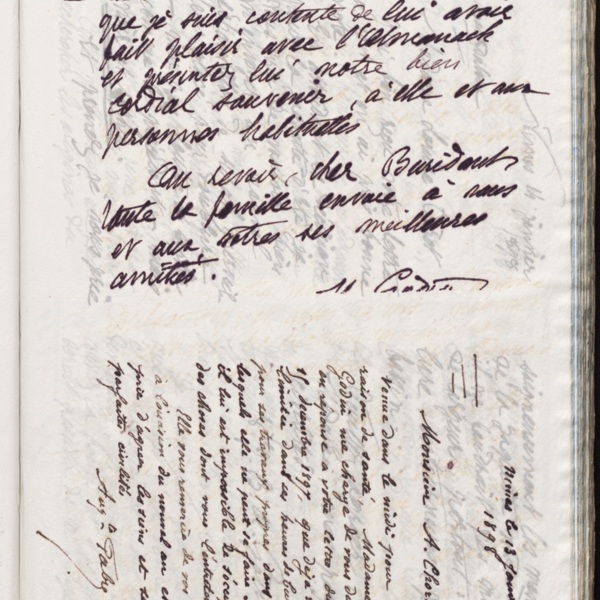 que je suis contente de lui avoir
fait plaisir avec l'Almanach
et présentez lui notre bien
cordial souvenir, à elle et aux
personnes habituelles
Au revoir, cher Buridant
toute la famille envoie à vous
et aux vôtres ses meilleures
amitiés.
Nîmes le 13
1898
Monsieur A.
Venue dans le midi pour
raison de santé, Madame
Godin me charge de vous
en réponse à votre lettre du
15 décembre 1897. que déjà
limitée dans ses heures de
pour ses travaux propres, dans
lesquels elle ne peut se faire
il lui est impossible de
des choses dont vous
Elle vous remercie de vos
à l'occasion du nouvel an et
prie d'agréer les siens et
parfaites civilités
Aug. Fabre